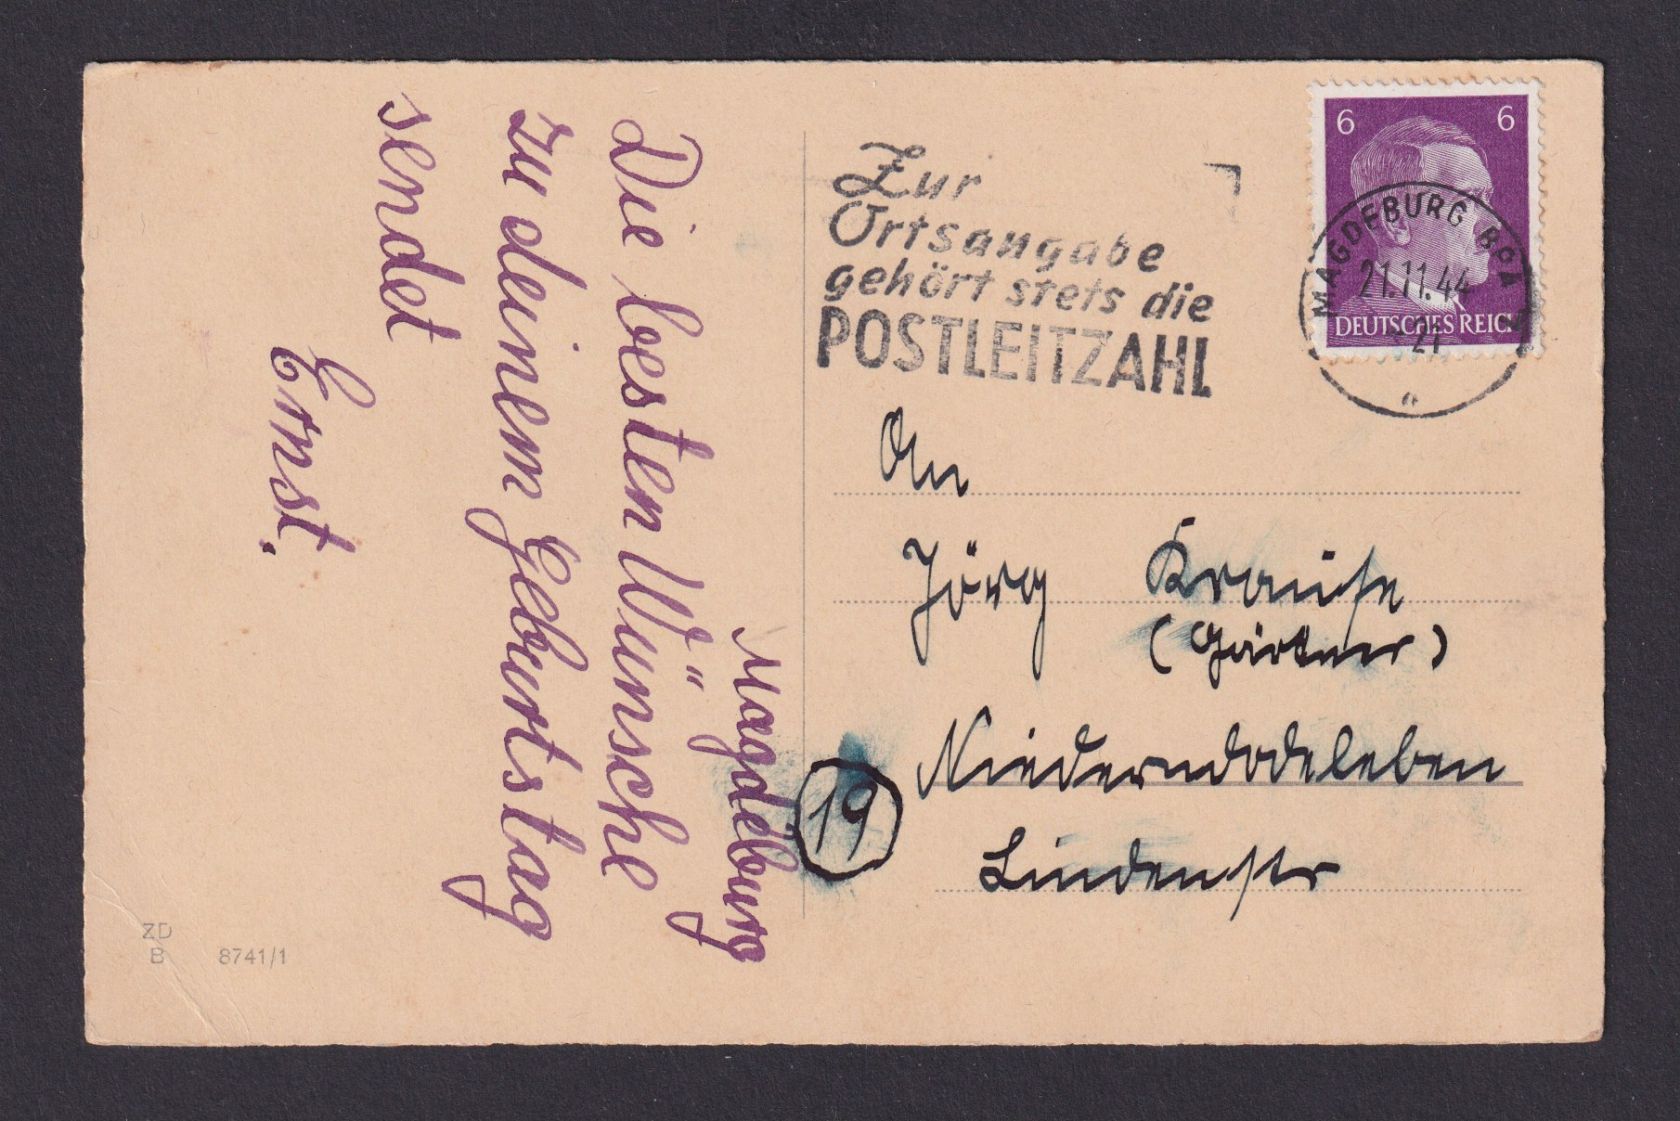 Magdeburg
Die besten Wünsche
zu deinem Geburtstag
sendet
Ernst.
ZD
B 8741/1
Zur
Ortsangabe
gehört stets die
POSTLEITZAHL
6 6
DEUTSCHES REICH
MAGDEBURG BPA
21.11.44
21
a
An
Jörg Krause
(Gärtner)
19
Niederndodeleben
Lindenstr